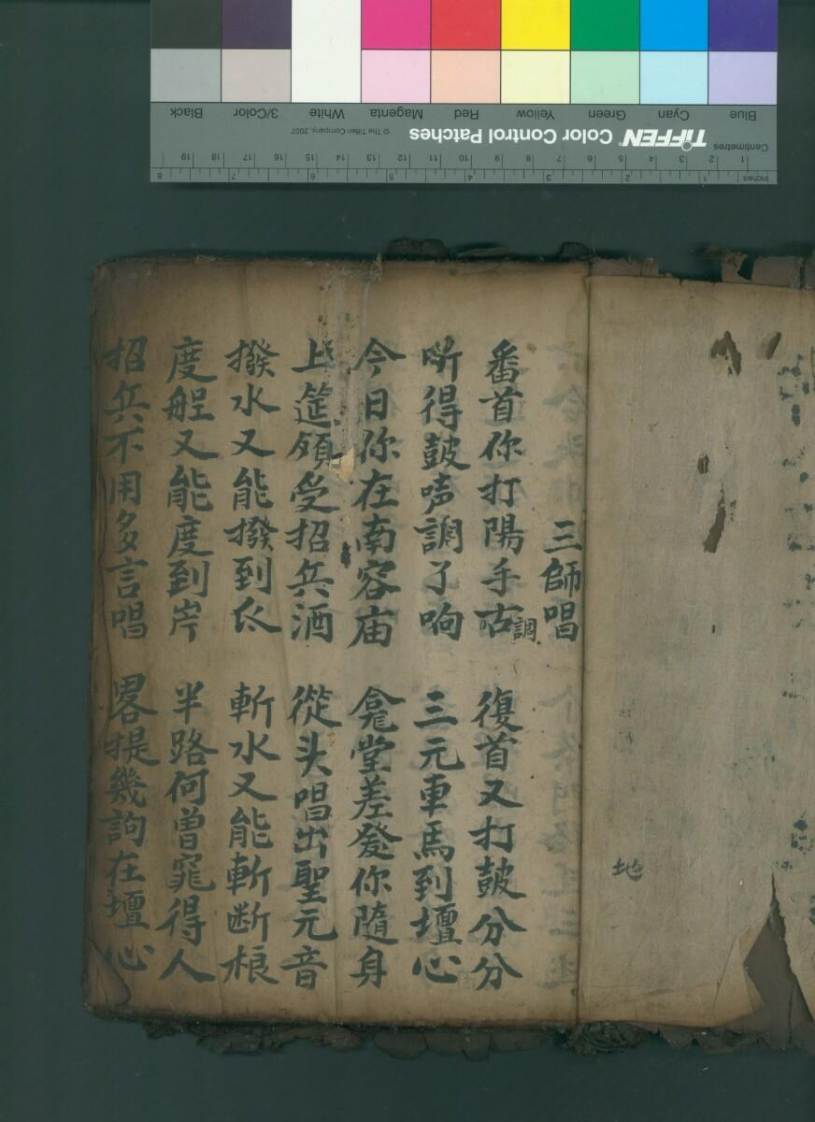 Blue Cyan Green Yellow Red Magenta White 3/Color Black
TIFFEN Color Control Patches © The Tiffen Company, 2007
Centimetres 1 2 3 4 5 6 7 8 9 10 11 12 13 14 15 16 17 18 19
Inches 1 2 3 4 5 6 7 8
地
三師唱
番首你打陽手古調 復首又打皷分分
听得皷唦調了响 三元車馬到壇心
今日你在南容庙 龛堂差發你隨身
上筵領受招兵酒 從头唱出聖元音
撥水又能撥到 斬水又能斬断根
度又能度到岸 半路何曾得人
招兵不用多言唱 畧提幾訽在壇心